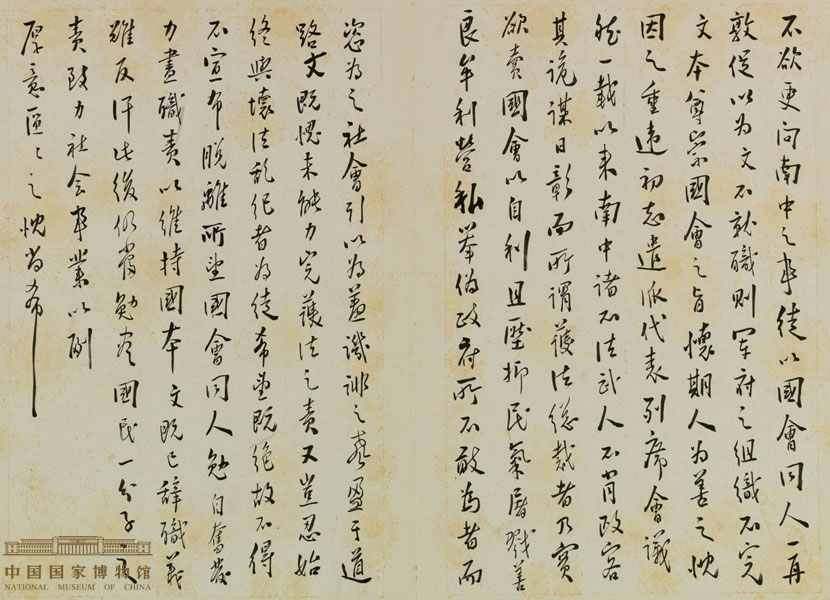 不欲更问南中之事徒以國會同人一再
敦促以为文不就職則軍府之组織不完
文本尊崇國會之旨懷期人为善之忱
因之重违初志遣派代表列席會議
一载以来南中诸不法武人不肖政客
其诡謀日彰而所谓護法總裁者乃實
欲賣國會以自利且壓抑民氣屠戮善
良牟利營私举伪政府所不敢为者而
恣为之社會引以为羞讥誹之声盈于道
路文既愧未能力完護法之责又豈忍始
终與壞法乱纪者为徒希望既绝故不得
不宣布脱離所望國會同人勉自奮发
力盡職责以維持國本文既已辭職義
雖反汗此後仍當勉尽國民一分子之
责致力社会事業以副
厚意区〻之忱尚希
中国国家博物馆
NATIONAL MUSEUM OF CHINA